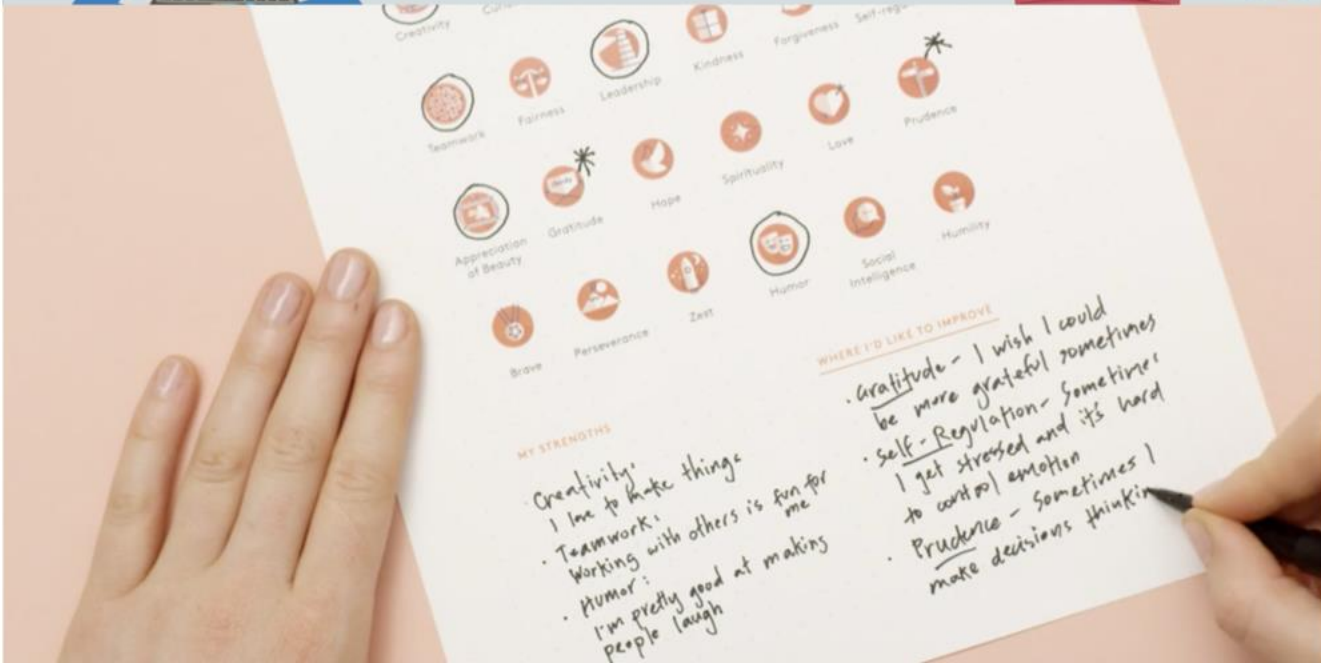 Creativity
Kindness
Forgiveness
Teamwork
Fairness
Leadership
Appreciation
of Beauty
Gratitude
Hope
Spirituality
Love
Prudence
Brave
Perseverance
Zest
Humor
Social
Intelligence
Humility
MY STRENGTHS
· Creativity:
I love to make things
· Teamwork:
Working with others is fun for
me
· Humor:
I'm pretty good at making
people laugh
WHERE I'D LIKE TO IMPROVE
· Gratitude - I wish I could
be more grateful sometimes
· Self-Regulation - Sometimes
I get stressed and it's hard
to control emotion
· Prudence - Sometimes I
make decisions thinkin